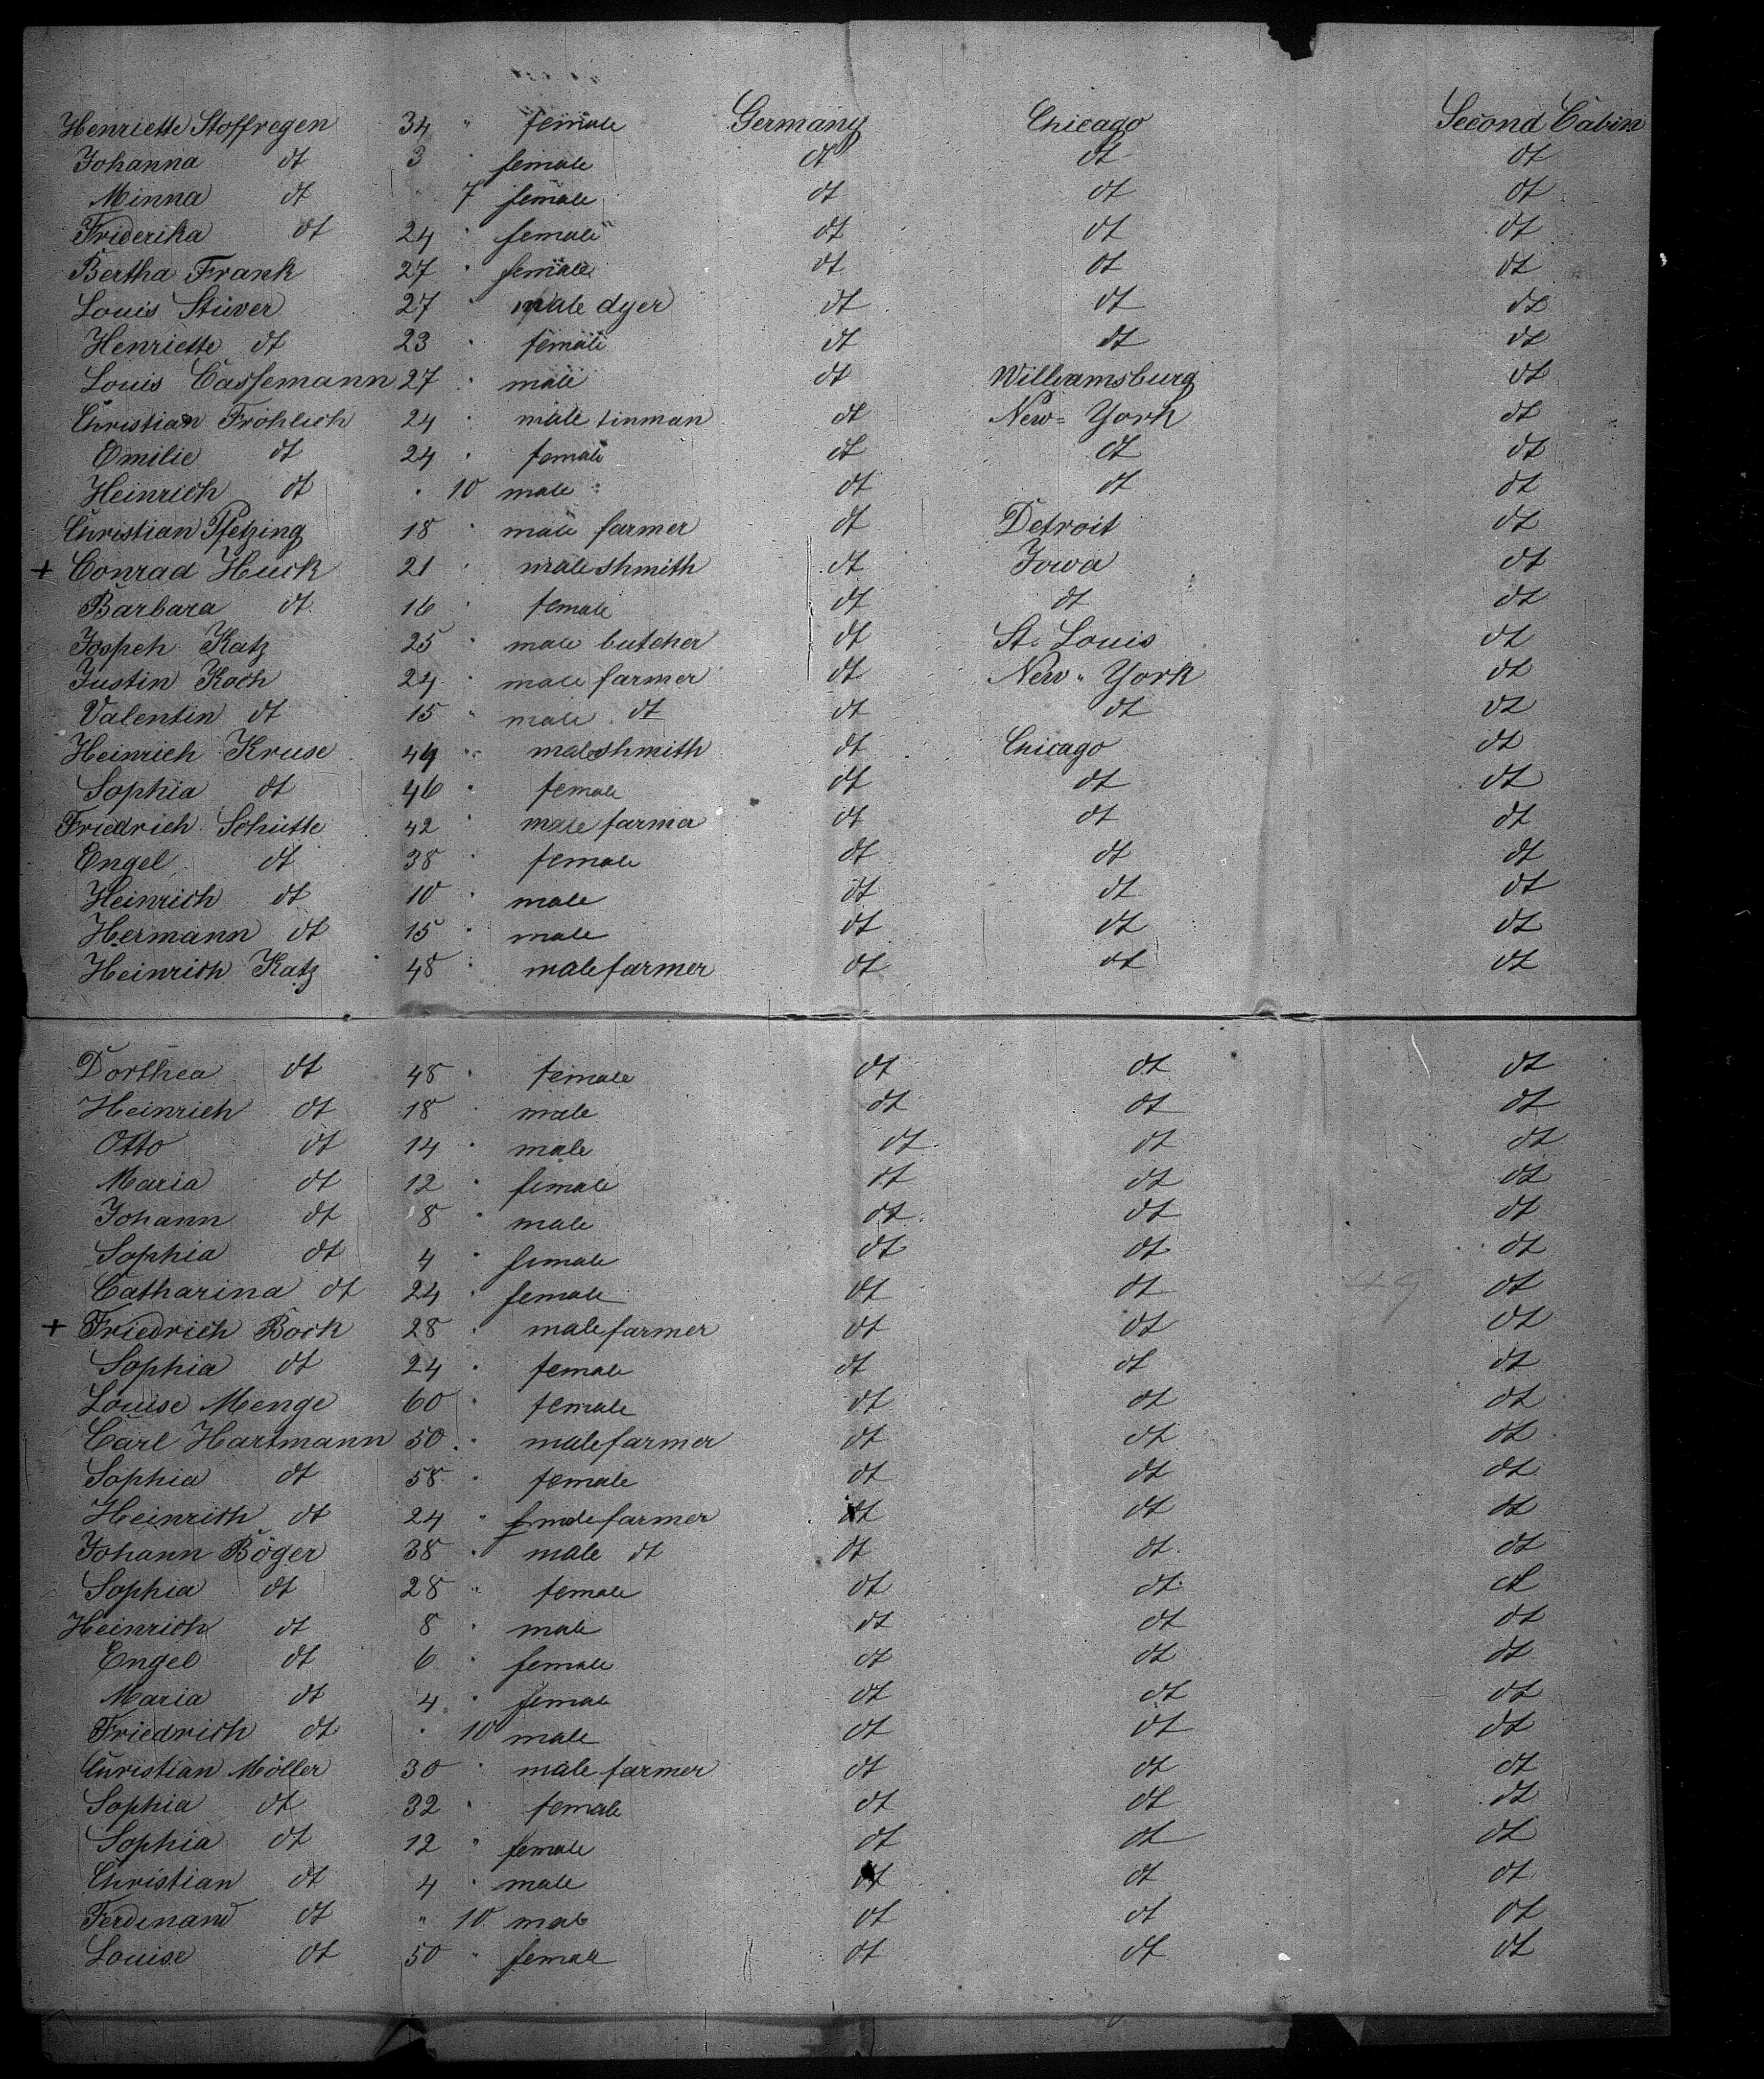 Henriette Stoffregen 34 " female Germany Chicago Second Cabin
Johanna dt 3 " female dt dt dt
Minna dt " 7 female dt dt dt
Friderika dt 24 " female dt dt dt
Bertha Frank 27 " female dt dt dt
Louis Stüver 27 " male dyer dt dt dt
Henriette dt 23 " female dt dt dt
Louis Cassemann 27 " male dt Williamsburg dt
Christian Fröhlich 24 " male tinman dt New=York dt
Emilie dt 24 " female dt dt dt
Heinrich dt " 10 male dt dt dt
Christian Pfetzing 18 " male farmer dt Detroit dt
+ Conrad Huck 21 " male shmith dt Iowa dt
Barbara dt 16 " female dt dt dt
Jospeh Katz 25 " male butcher dt St. Louis dt
Justin Koch 24 " male farmer dt New=York dt
Valentin dt 15 " male dt dt dt dt
Heinrich Kruse 49 " male shmith dt Chicago dt
Sophia dt 46 " female dt dt dt
Friedrich Schütte 42 " male farmer dt dt dt
Engel dt 38 " female dt dt dt
Heinrich dt 10 " male dt dt dt
Hermann dt 15 " male dt dt dt
Heinrich Katz 48 " male farmer dt dt dt
Dorthea dt 48 " female dt dt dt
Heinrich dt 18 " male dt dt dt
Otto dt 14 " male dt dt dt
Maria dt 12 " female dt dt dt
Johann dt 8 " male dt dt dt
Sophia dt 4 " female dt dt dt
Catharina dt 24 " female dt dt 49 dt
+ Friedrich Bock 28 " male farmer dt dt dt
Sophia dt 24 " female dt dt dt
Louise Menge 60 " female dt dt dt
Carl Hartmann 50 " male farmer dt dt dt
Sophia dt 58 " female dt dt dt
Heinrich dt 24 " male farmer dt dt dt
Johann Böger 38 " male dt dt dt dt
Sophia dt 28 " female dt dt dt
Heinrich dt 8 " male dt dt dt
Engel dt 6 " female dt dt dt
Maria dt 4 " female dt dt dt
Friedrich dt " 10 male dt dt dt
Christian Möller 30 " male farmer dt dt dt
Sophia dt 32 " female dt dt dt
Sophia dt 12 " female dt dt dt
Christian dt 4 " male dt dt dt
Ferdinand dt " 10 male dt dt dt
Louise dt 50 " female dt dt dt